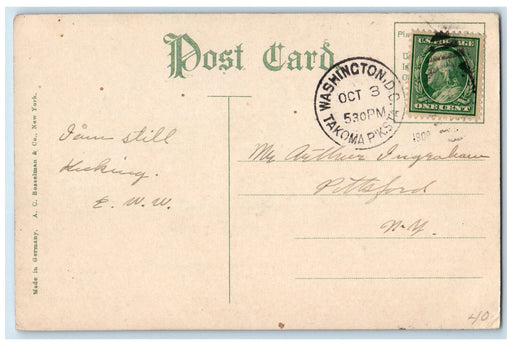 Post Card
U.S. POSTAGE
ONE CENT
WASHINGTON, D.C.
OCT 3
530PM
TAKOMA P'K STA
1909
I am still
kicking.
E. W. W.
Mr Arthur Ingraham
Pittsford
N.Y.
Made in Germany. A. C. Bosselman & Co., New York.
40